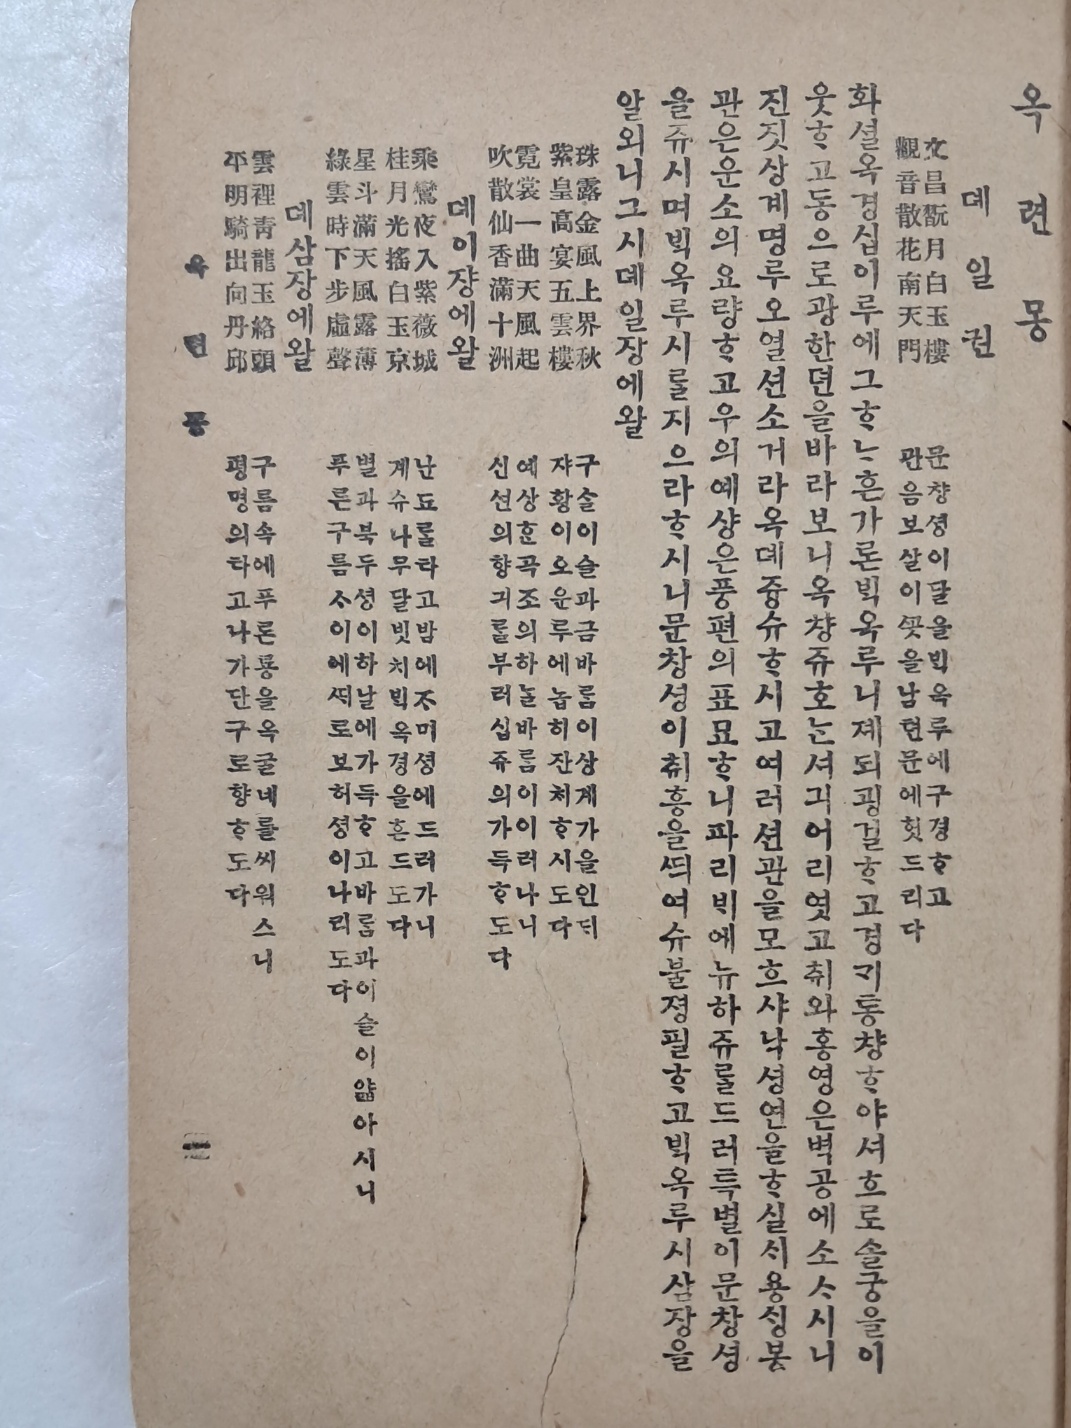 옥련몽
뎨일권
文昌翫月白玉樓
觀音散花南天門
문챵셩이달을ᄇᆡᆨ옥루에구경ᄒᆞ고
관음보살이ᄭᅩᆺ을남텬문에헛드리다
화셜옥경십이루에그ᄒᆞᄂᆞ흔가론ᄇᆡᆨ옥루니졔되굉걸ᄒᆞ고경ᄀᆡ통챵ᄒᆞ야셔흐로솔궁을이
웃ᄒᆞ고동으로광한뎐을바라보니옥챵쥬호ᄂᆞᆫ셔긔어리엿고취와홍영은벽공에소ᄉᆞ시니
진짓상계명루오열션소거라옥뎨즁슈ᄒᆞ시고여러션관을모흐샤낙셩연을ᄒᆞ실ᄉᆡ용ᄉᆡᆼ봉
관은운소의요량ᄒᆞ고우의예샹은풍편의표묘ᄒᆞ니파리ᄇᆡ에뉴하쥬ᄅᆞᆯ드러특별이문창셩
을쥬시며ᄇᆡᆨ옥루시ᄅᆞᆯ지으라ᄒᆞ시니문창셩이취흥을ᄯᅴ여슈불졍필ᄒᆞ고ᄇᆡᆨ옥루시삼장을
알외니그시뎨일장에왈
珠露金風上界秋
紫皇高宴五雲樓
霓裳一曲天風起
吹散仙香滿十洲
구슬이슬과금바ᄅᆞᆷ이상계가을인ᄃᆡ
쟈황이오운루에놉히잔치ᄒᆞ시도다
예상ᄒᆞᆫ곡조의하ᄂᆞᆯ바ᄅᆞᆷ이이러나니
신션의향긔ᄅᆞᆯ부러십쥬의가득ᄒᆞ도다
뎨이쟝에왈
乘鸞夜入紫薇城
桂月光搖白玉京
星斗滿天風露薄
綠雲時下步虛聲
난됴ᄅᆞᆯ타고밤에ᄌᆞ미셩에드러가니
계슈나무달빗치ᄇᆡᆨ옥경을흔드도다
별과북두셩이하날에가득ᄒᆞ고바ᄅᆞᆷ과이슬이얇아시니
푸른구름ᄉᆞ이에ᄯᆡ로보허셩이나리도다
뎨삼장에왈
雲裡靑龍玉絡頭
平明騎出向丹邱
구름속에푸른룡을옥굴네를씨워스니
평명의타고나가단구로향ᄒᆞ도다
옥련몽
一